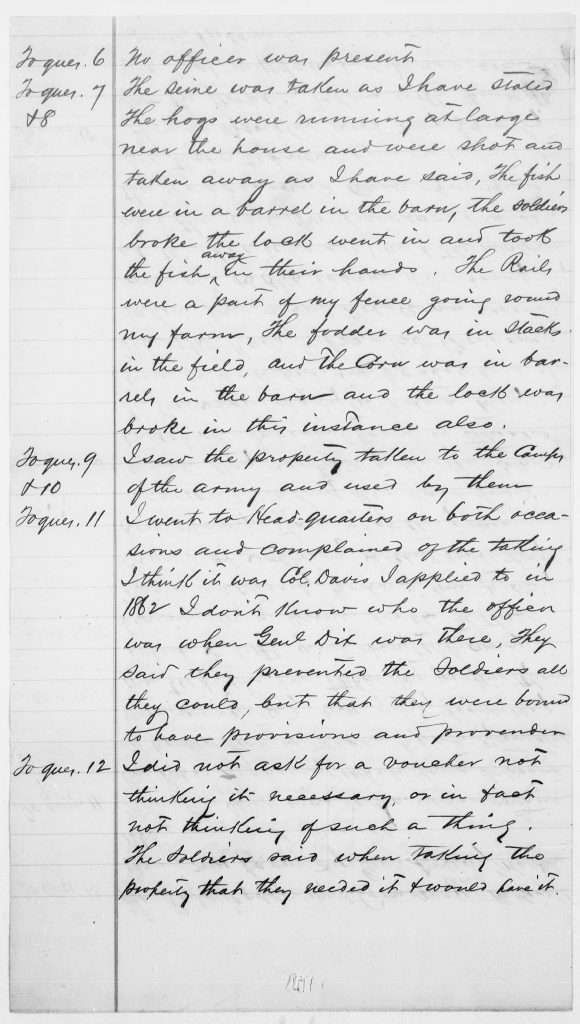 To ques. 6 No officer was present
To ques. 7 The seine was taken as I have stated
& 8 The hogs were running at large
near the house and were shot and
taken away as I have said, The fish
were in a barrel in the barn, the soldiers
broke the lock went in and took
the fish away in their hands. The Rails
were a part of my fence going round
my farm, The fodder was in stacks
in the field, and the Corn was in bar-
rels in the barn and the lock was
broke in this instance also.
To ques. 9 I saw the property taken to the Camps
& 10 of the army and used by them
To ques. 11 I went to Head-quarters on both occa-
sions and complained of the taking
I think it was Col. Davis I applied to in
1862 I don't know who the officer
was when Genl Dix was there, They
said they prevented the Soldiers all
they could, but that they were bound
to have provisions and provender
To ques. 12 I did not ask for a voucher not
thinking it necessary, or in fact
not thinking of such a thing.
The Soldiers said when taking the
property that they needed it & would have it.